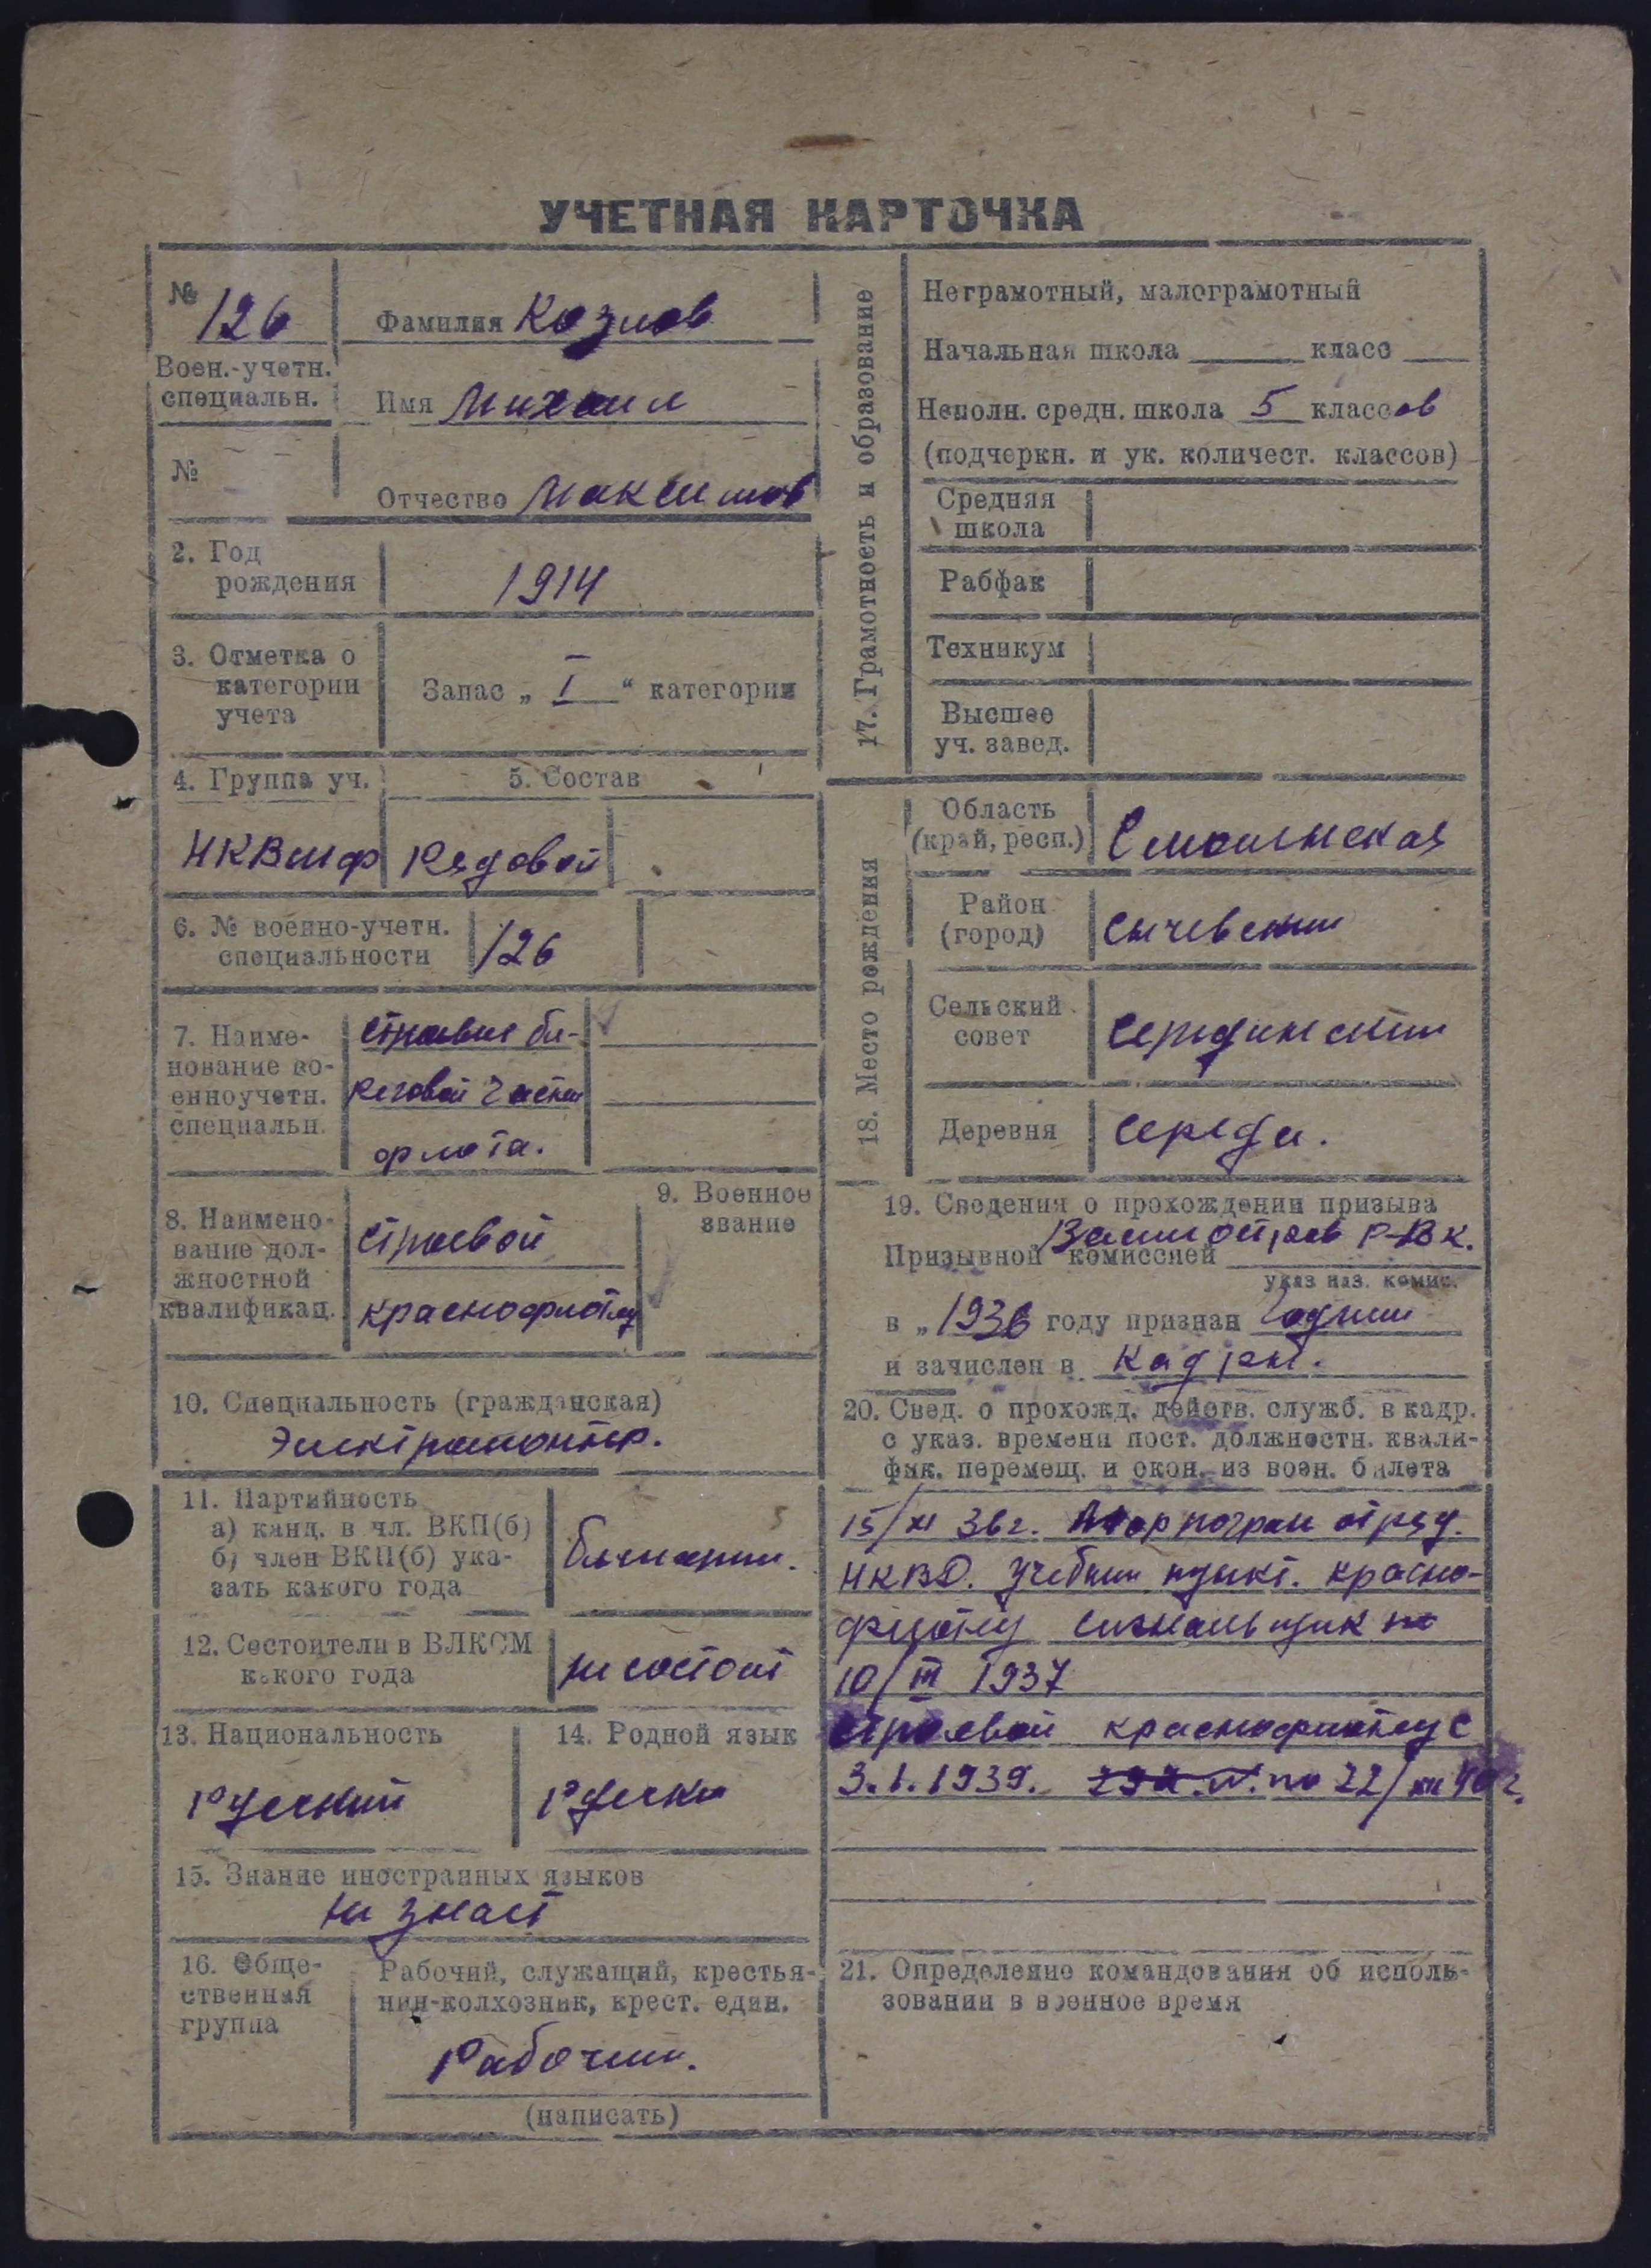 УЧЕТНАЯ КАРТОЧКА
№ 126
Фамилия Козлов
Воен.-учетн.
специальн.
Имя Михаил
№
Отчество Максимов
2. Год
рождения
1914
3. Отметка о
категории
учета
Запас „ I “ категории
4. Группа уч.
5. Состав
НКВмф
Рядовой
6. № военно-учетн.
специальности
126
7. Наиме-
нование во-
енноучетн.
специальн.
строевые бе-
реговой части
флота.
8. Наимено-
вание дол-
жностной
квалификац.
строевой
краснофлотец
9. Военное
звание
10. Специальность (гражданская)
Электромонтер.
11. Партийность
а) канд. в чл. ВКП(б)
б) член ВКП(б) ука-
зать какого года
Беспартий.
12. Состоит ли в ВЛКСМ
какого года
не состоит
13. Национальность
Русский
14. Родной язык
Русски
15. Знание иностранных языков
не знает
16. Обще-
ственная
группа
Рабочий, служащий, крестья-
нин-колхозник, крест. един.
Рабочий.
(написать)
17. Грамотность и образование
Неграмотный, малограмотный
Начальная школа ____ класс ____
Неполн. средн. школа 5 классов
(подчеркн. и ук. количест. классов)
Средняя
школа
Рабфак
Техникум
Высшее
уч. завед.
18. Место рождения
Область
(край, респ.)
Смоленская
Район
(город)
Сычевский
Сельский
совет
Середински
Деревня
Середа.
19. Сведения о прохождении призыва
Призывной комиссией Р-ВК.
указ наз. комис.
в „1936 году признан годным
и зачислен в кадры.
20. Свед. о прохожд. действ. служб. в кадр.
с указ. времени пост. должностн. квали-
фик. перемещ. и окон. из воен. билета
15/XI 36 г. погран отряд.
НКВД. Учебный пункт. красно-
флотец сигнальщик
10/III 1937
строевой краснофлотец с
3.I.1939. по 22/ 40 г.
21. Определение командования об исполь-
зовании в военное время